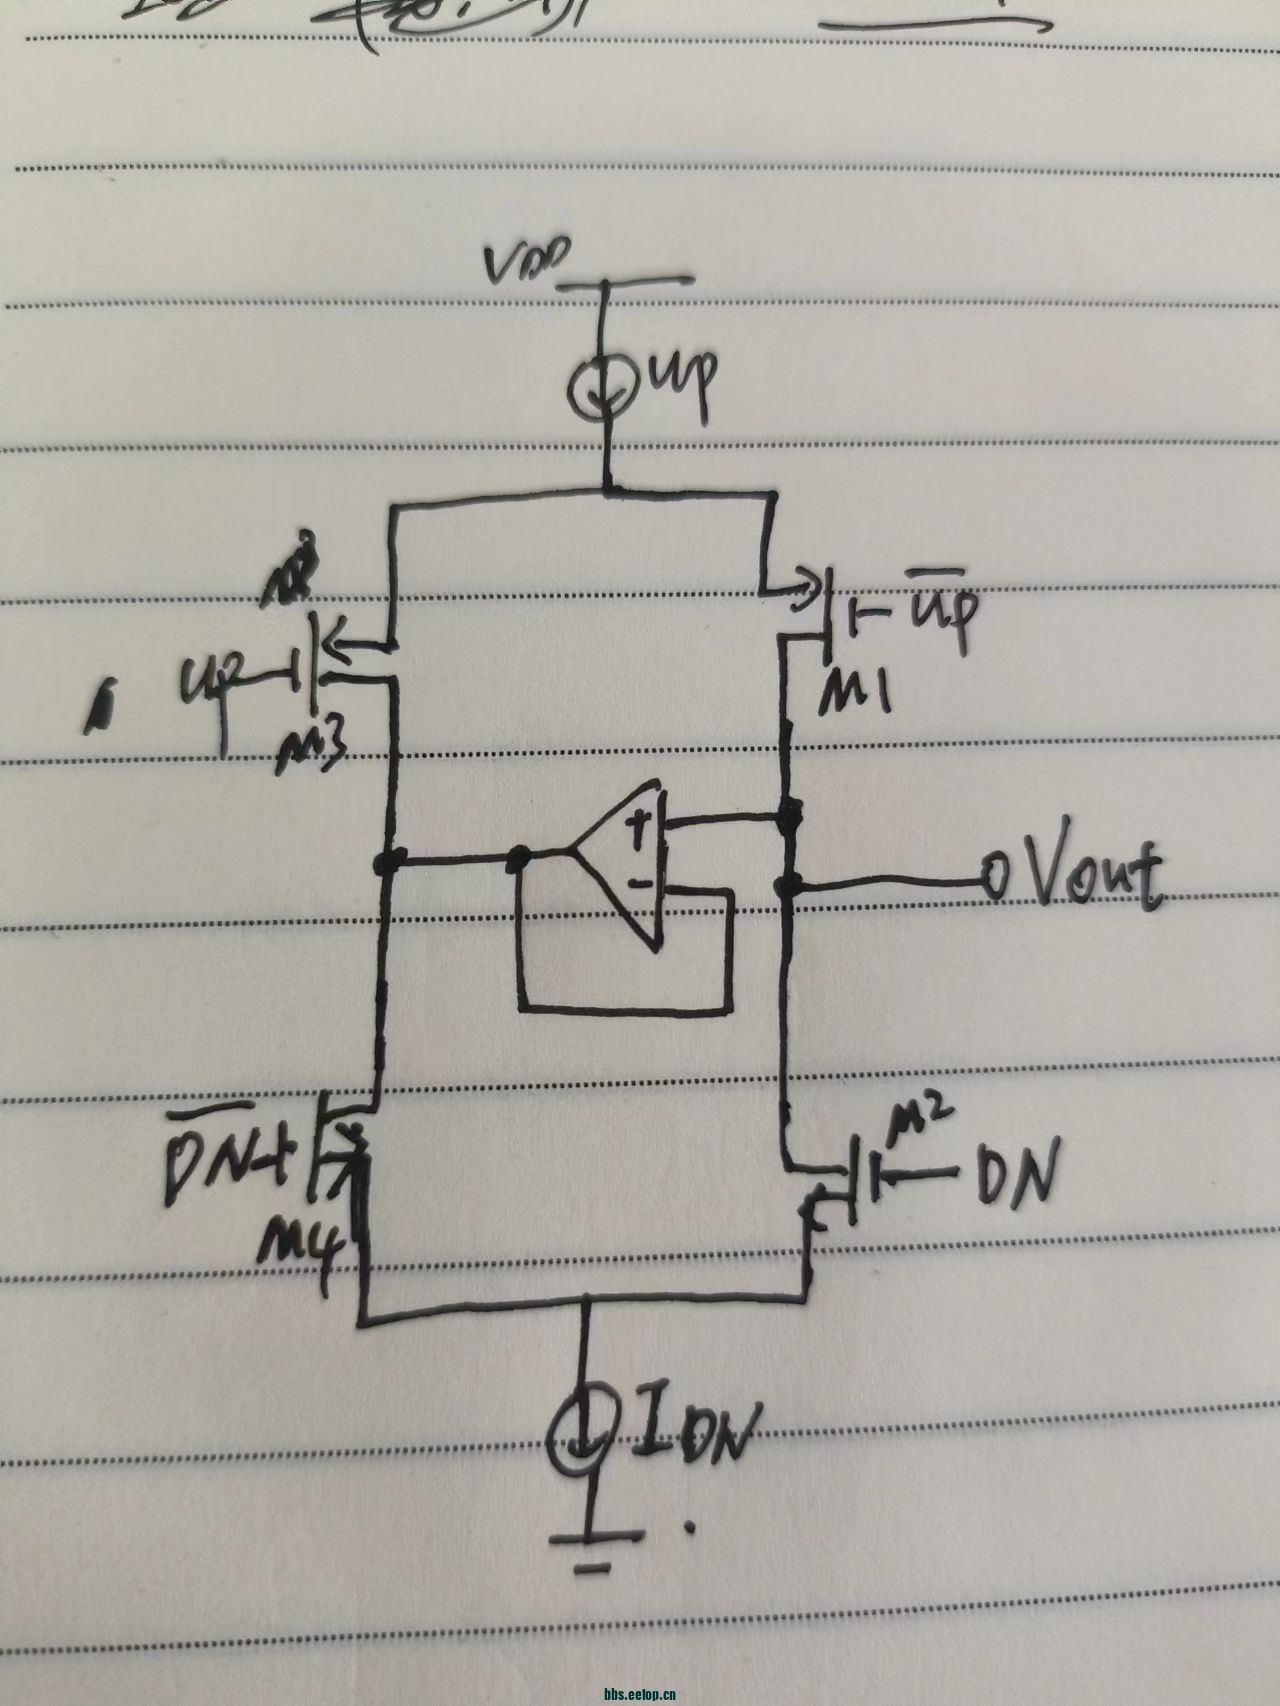 VDD
up
up
M3
U̅P̅
M1
+
-
Vout
D̅N̅
M4
M2
DN
IDN
bbs.eetop.cn